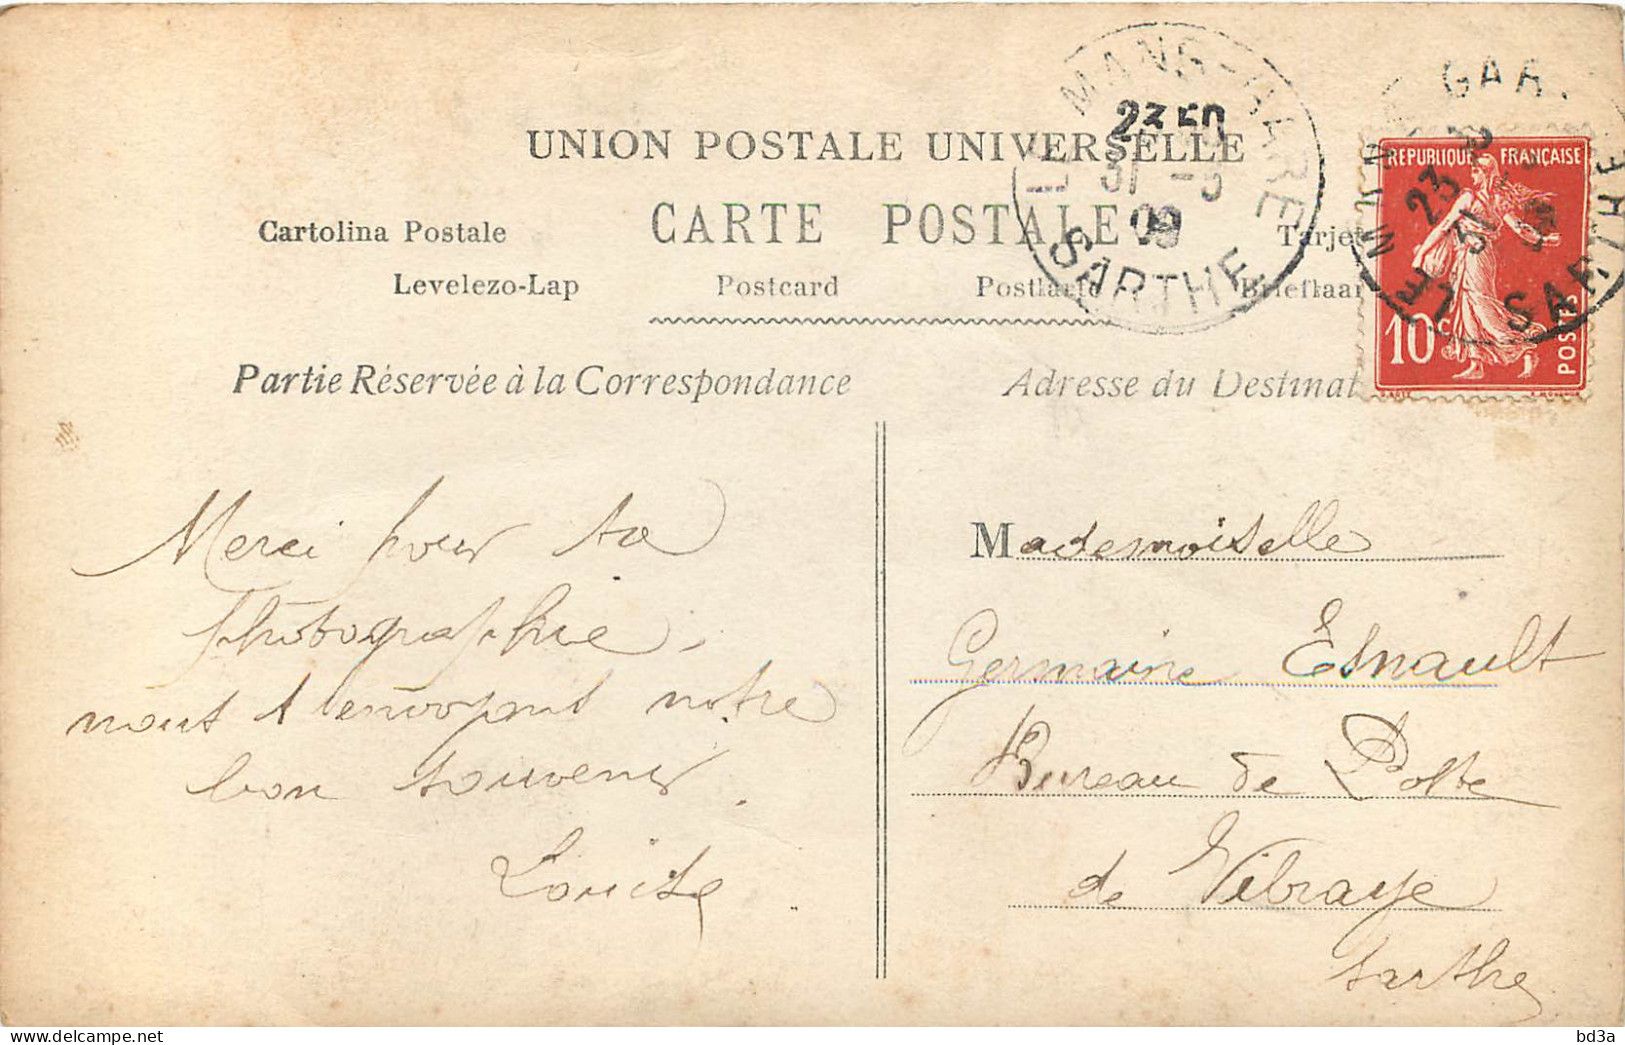 UNION POSTALE UNIVERSELLE
CARTE POSTALE
Cartolina Postale
Tarjet
Levelezo-Lap Postcard Postkarte Briefkaar
Partie Réservée à la Correspondance
Adresse du Destinat
LE MANS-GARE
23 50
31 -5
09
SARTHE
LE MANS GARE
23
31
09
SARTHE
REPUBLIQUE FRANÇAISE
10 c
POSTES
Merci pour ta
photographie,
nous t'envoyons notre
bon souvenir.
Louise
Mademoiselle
Germaine Esnault
Bureau de Poste
de Vibraye
Sarthe
bd3a